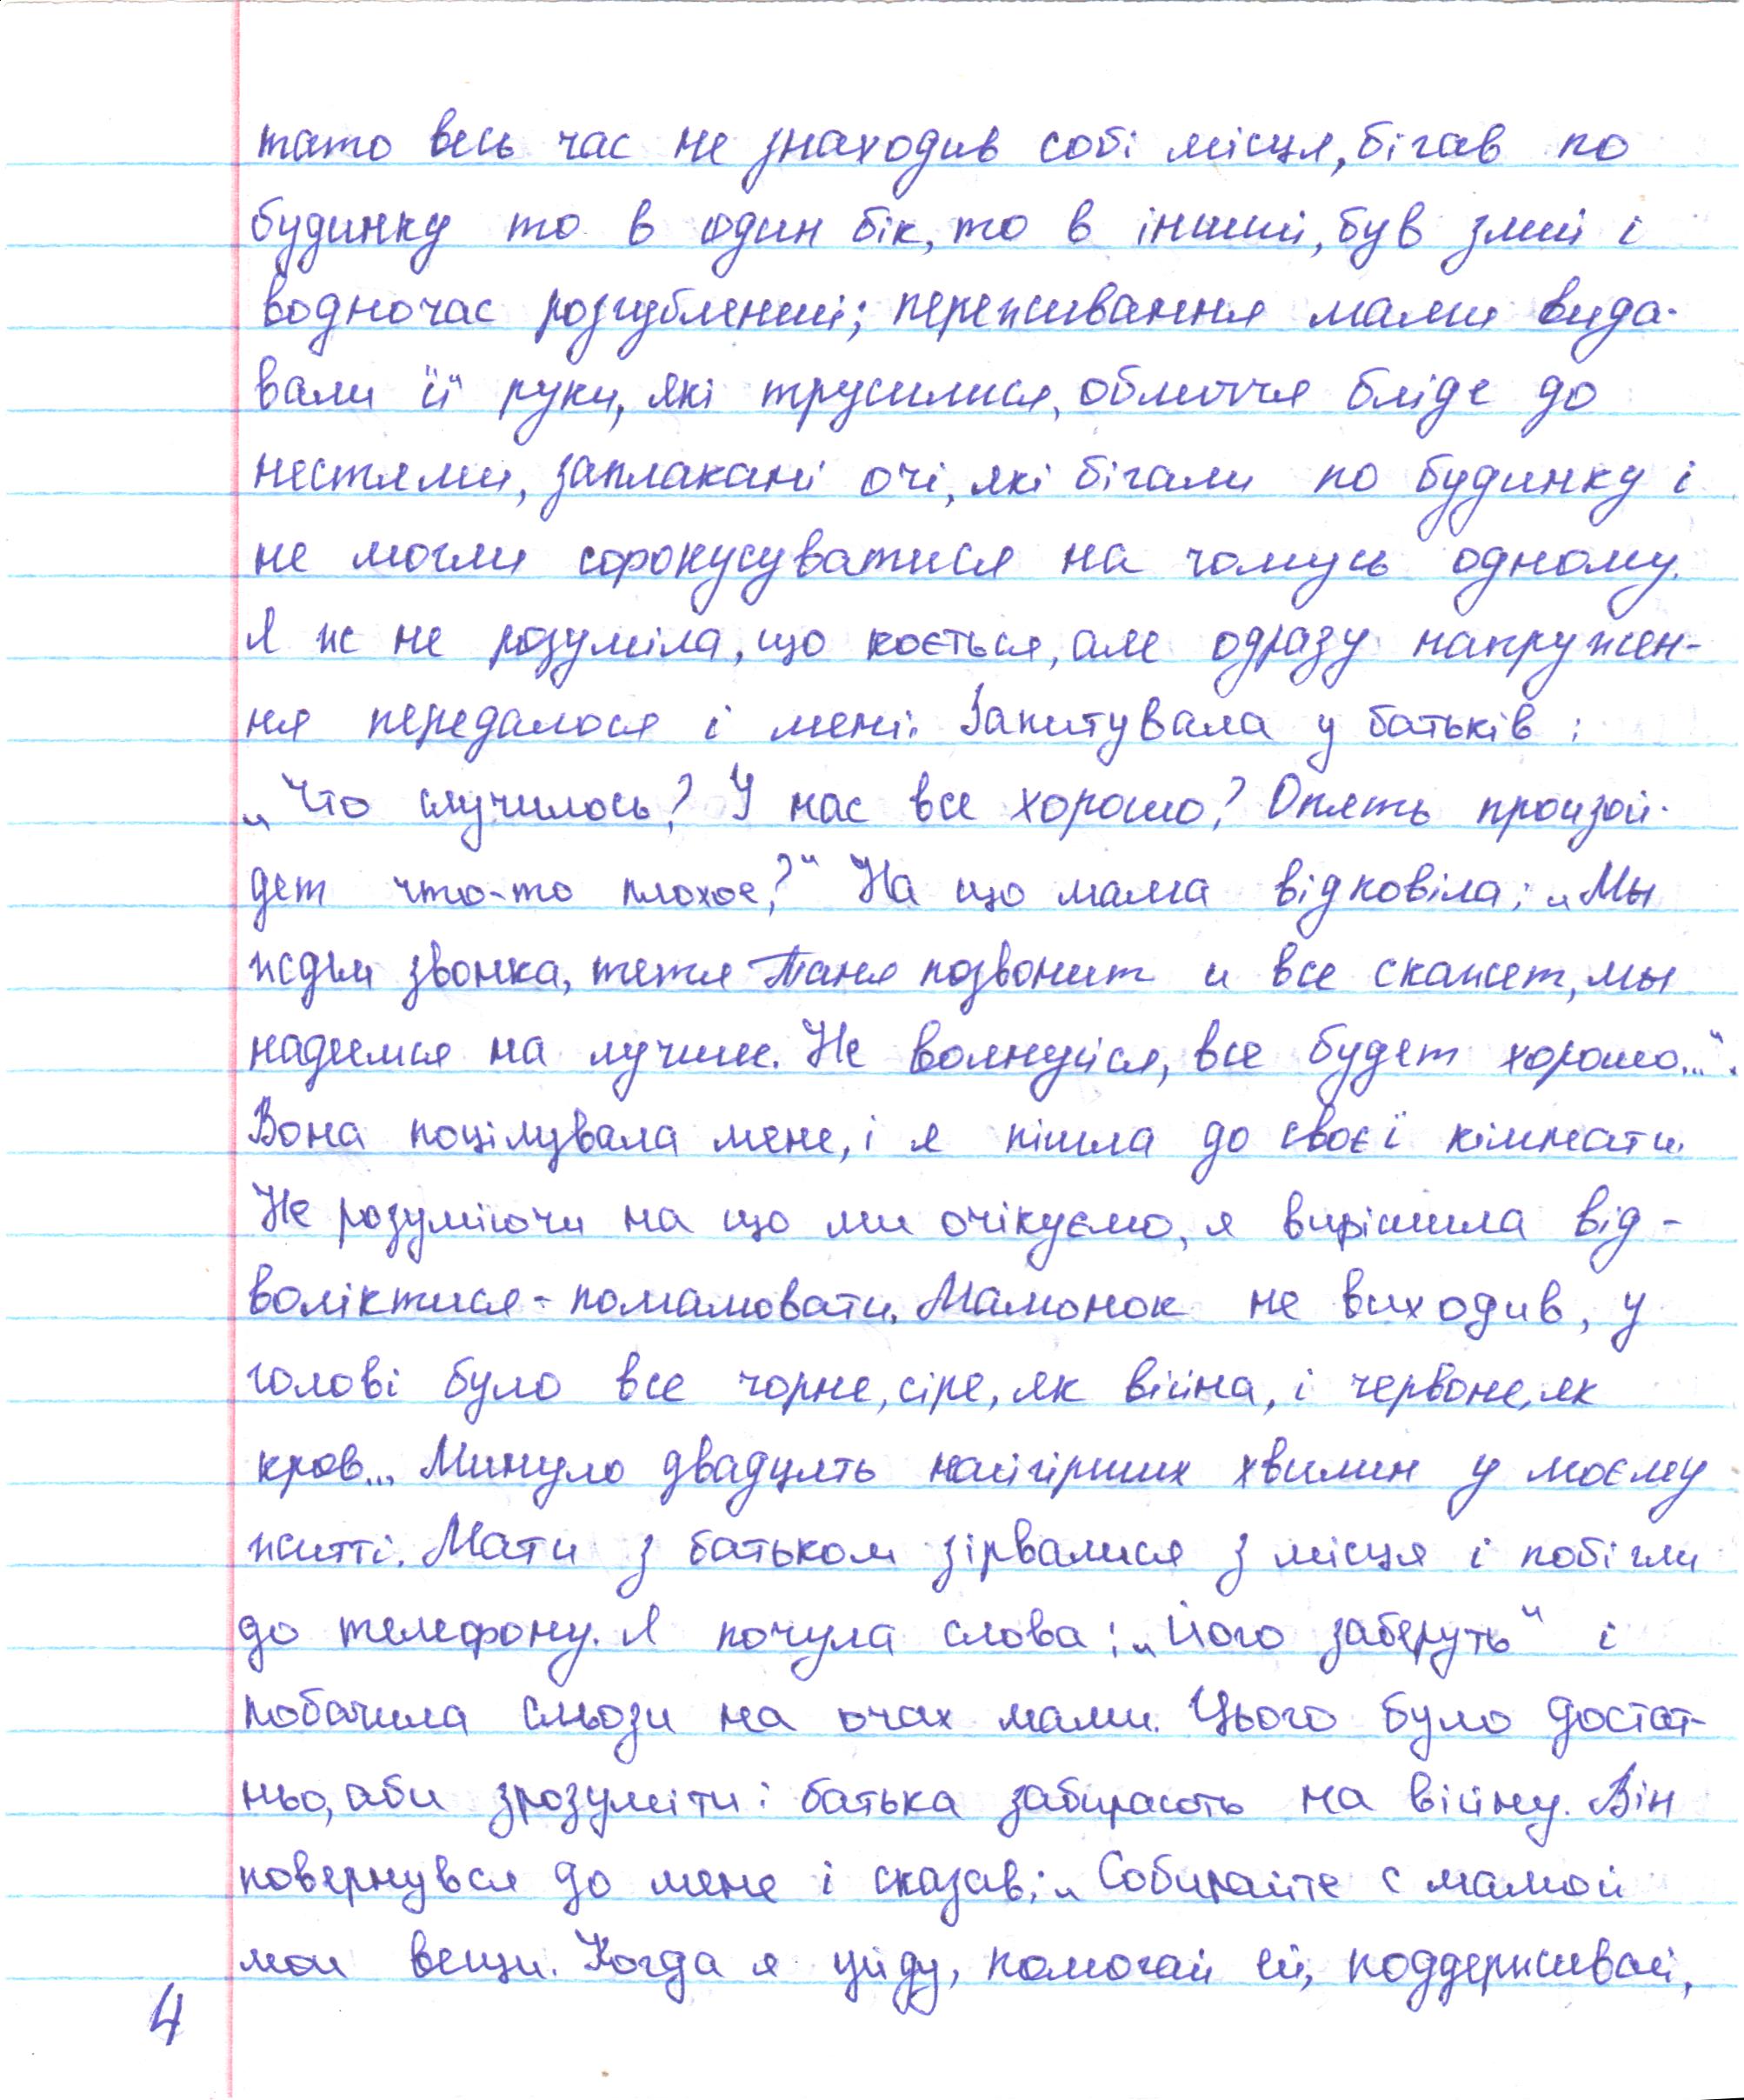 тато весь час не знаходив собі місця, бігав по
будинку то в один бік, то в інший, був злий і
водночас розгублений; переживання мами вида-
вали її руки, які трусилися, обличчя бліде до
нестями, заплакані очі, які бігали по будинку і
не могли сфокусуватися на чомусь одному.
Я ж не розуміла, що коється, але одразу напружен-
ня передалося і мені. Запитувала у батьків:
„Что случилось? У нас все хорошо? Опять произой-
дет что-то плохое?" На що мама відповіла: „Мы
ждем звонка, тетя Таня позвонит и все скажет, мы
надеемся на лучшее. Не волнуйся, все будет хорошо...".
Вона поцілувала мене, і я пішла до своєї кімнати.
Не розуміючи на що ми очікуємо, я вирішила від-
воліктися - помалювати. Малюнок не виходив, у
голові було все чорне, сіре, як війна, і червоне, як
кров... Минуло двадцять найгірших хвилин у моєму
житті. Мати з батьком зірвалися з місця і побігли
до телефону. Я почула слова: „Його заберуть" і
побачила сльози на очах мами. Цього було достат-
ньо, аби зрозуміти: батька забирають на війну. Він
повернувся до мене і сказав: „Собирайте с мамой
мои вещи. Когда я уйду, помогай ей, поддерживай,
4